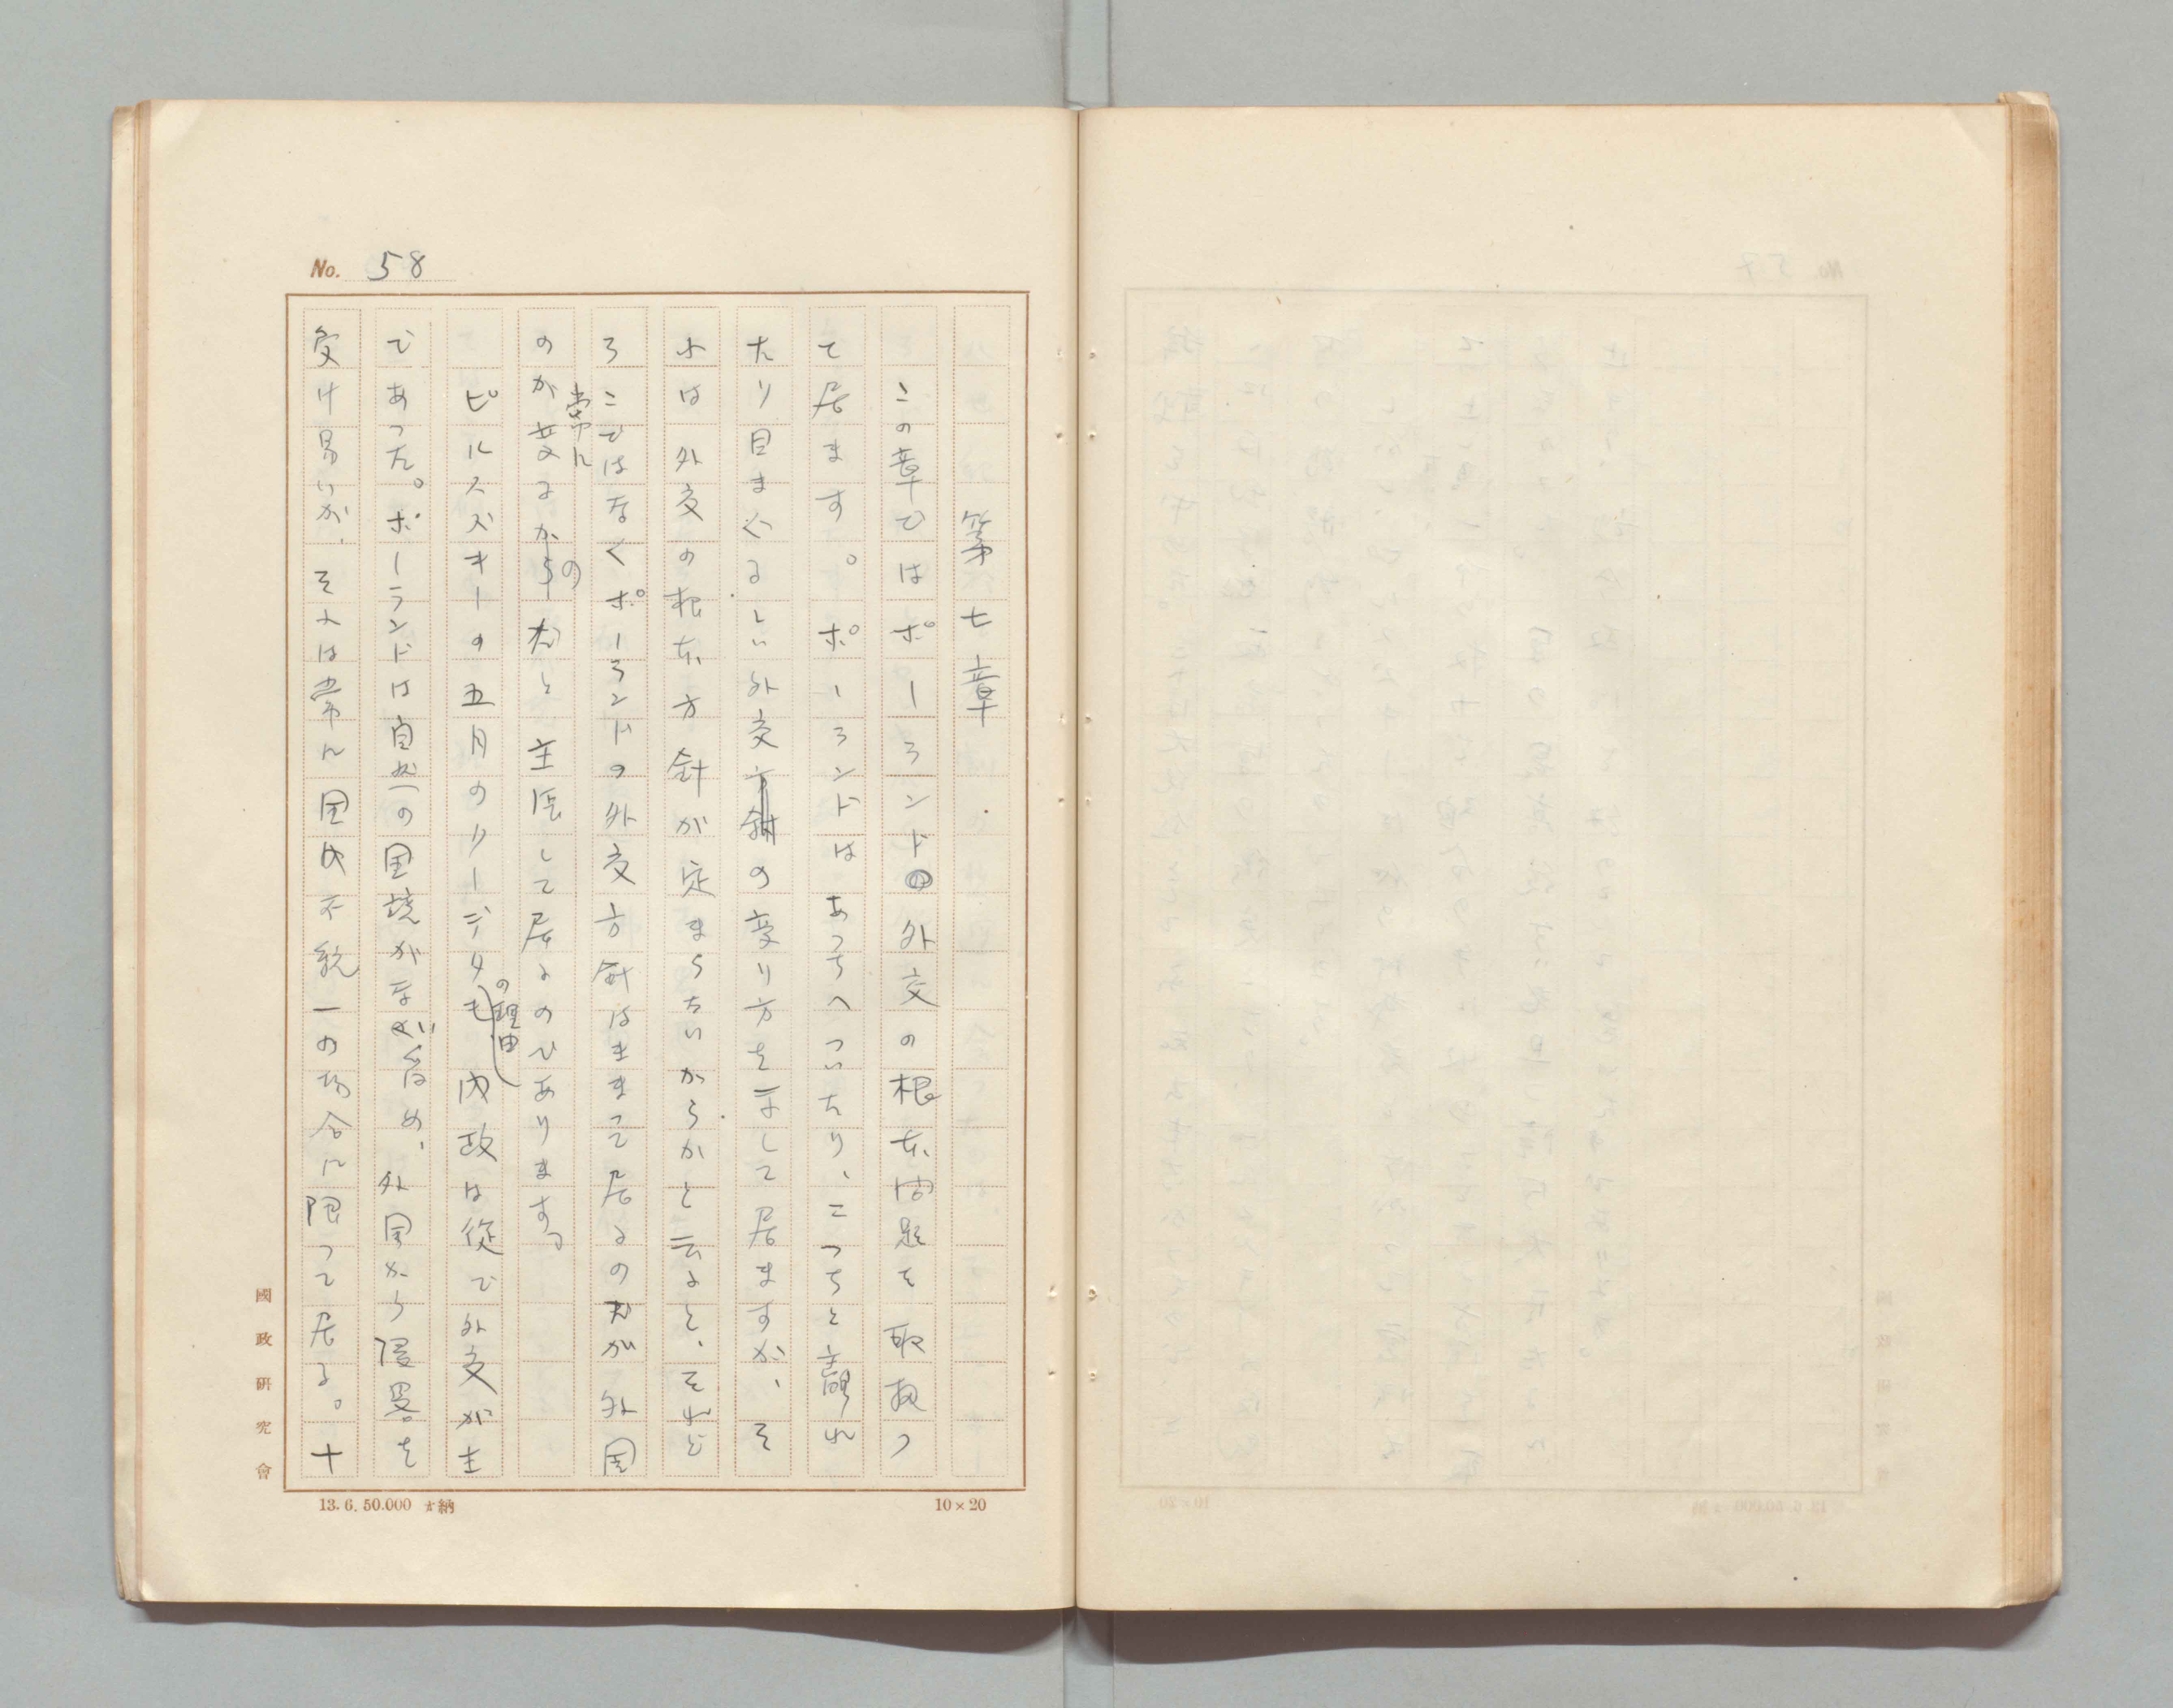 No. 58
第七章
この章ではポーランドの外交の根本問題を取扱つ
て居ます。ポーランドはあっちへついたり、こっちと離れ
たり目まぐるしい外交の変り方を示して居ますが、そ
れは外交の根本方針が定まらないからかと云ふと、それど
ろこではなくポーランドの外交方針はきまって居るのだが外国
のが常に変るからだと主張して居るのであります。
ピルスズキーの五月のクーデタの理由も内政は従で外交が主
であった。ポーランドは自然の国境がない為め、外国から侵畧を
受け易いが、それは常に国内不統一の場合に限って居る。十
國政研究會
13.6.50.000 納
10×20